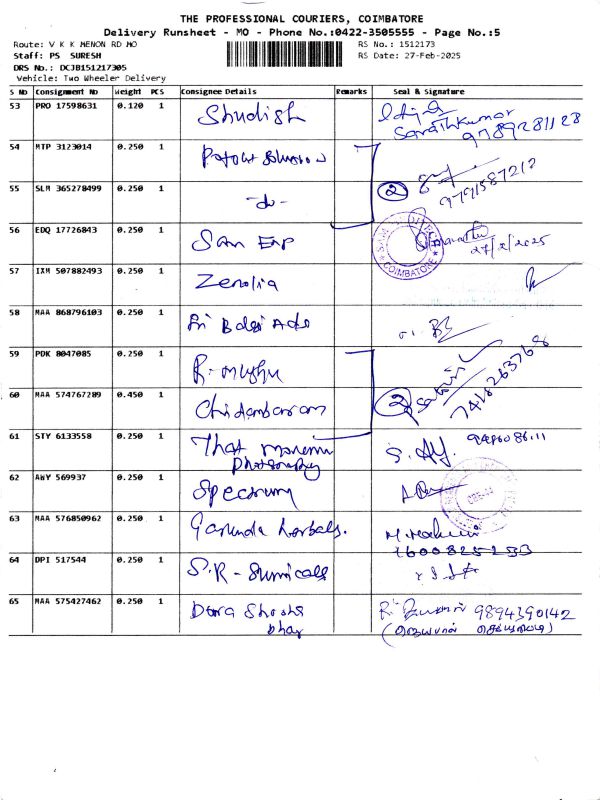 THE PROFESSIONAL COURIERS, COIMBATORE
Delivery Runsheet - MO - Phone No.:0422-3505555 - Page No.:5
Route: V K K MENON RD MO RS No.: 1512173
Staff: PS SURESH RS Date: 27-Feb-2025
DRS No.: DCJB151217305
Vehicle: Two Wheeler Delivery
S No Consignment No Weight PCS Consignee Details Remarks Seal & Signature
53 PRO 17598631 0.120 1 Sarathkumar 9789281128
54 MTP 3123014 0.250 1
55 SLM 365278499 0.250 1 -do- 2
56 EDQ 17726843 0.250 1 Sam Enp COIMBATORE 27/2/2025
57 IXM 507882493 0.250 1 Zenolia
58 MAA 868796103 0.250 1 Sri Balaji Ads
59 PDK 8047085 0.250 1
60 MAA 574767289 0.450 1 Chidambaram 2 7418263768
61 STY 6133558 0.250 1 That
Photography
62 AWY 569937 0.250 1 Spectrum
63 MAA 576850962 0.250 1 Garuda herbals.
64 DPI 517544 0.250 1 S.R - Surnicals
65 MAA 575427462 0.250 1 9894390142